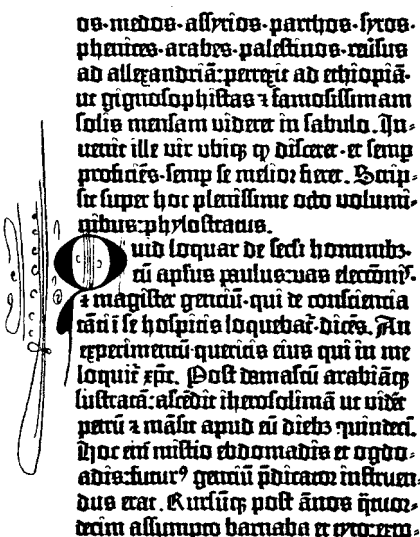 os·medos·assyrios·parthos·syros·
phenices·arabes·palestinos·reūsus
ad allexandriā:perrexit ad ethiopiā·
ut gignosophistas ⁊ famosissimam
solis mensam videret in sabulo. In-
venit ille vir ubiqꝫ qꝫ disceret·et semp
proficiēs·semp se melior fieret. Scrip-
sit super hoc plenissime octo volumi-
nibus:phylostratus.
Quid loquar de secli hominibꝫ·
cū apƚus paulus:vas electōnis·
⁊ magister gentiū·qui de conscientia
tāti ī se hospitis loquebat̄·dicēs. An
experimentū queritis eius qui in me
loquit̄ xp̄c. Post damascū arabiāqꝫ
lustratā:ascēdit iherosolimā ut vidēt
petrū ⁊ māsit apud eū diebꝫ quindeci.
Hoc eni mistio ebdomadis et ogdo-
adis:futurꝰ gentiū p̄dicator instruen-
dus erat. Rursūqꝫ post ānos q̄tuor-
decim assumpto barnaba et tyto:expo-